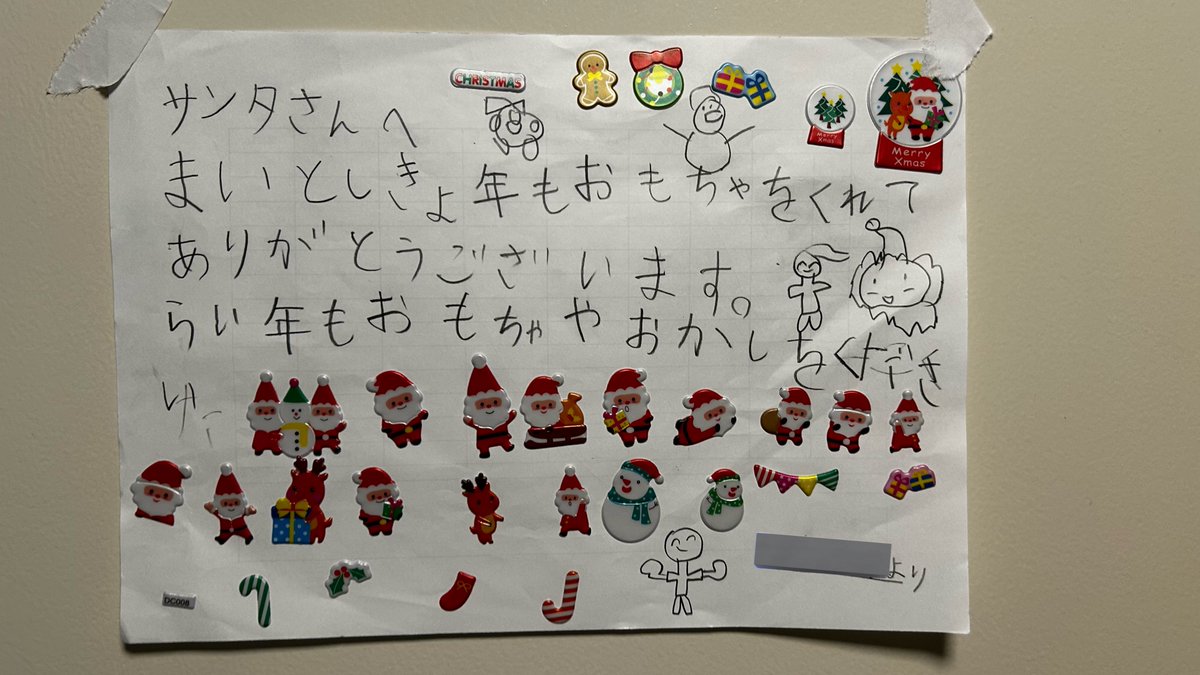 CHRISTMAS
サンタさんへ
Merry Xmas
Merry Xmas
まいとしきょ年もおもちゃをくれて
ありがとうございます。
らい年もおもちゃやおかしをく
より
DC008